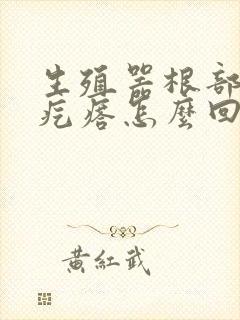 生殖器根部
疙瘩怎麼回
黃紅武